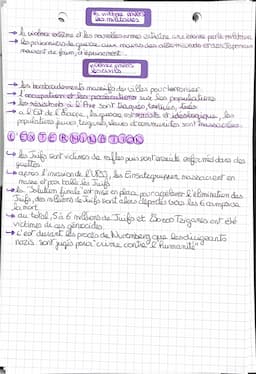 la violence envers
les militaires
→ la violence extrême et les nouvelles armes entraîne une énorme perte militaire
→ les prisonniers de guerre aux mains des allemands et des Japonais
meurent de faim, d'épuisement
violence envers
les civils
→ les bombardements massifs de villes pour terroriser
→ l'occupation et les persécutions sur les populations
→ les résistants à l'Axe sont traqués, torturés, tués
→ à l'Est de l'Europe, la guerre est raciste et idéologique, les
populations juives, tziganes, slaves et communistes sont massacrées.
L'EXTERMINATION
↳ les Juifs sont victimes de rafles puis sont ensuite enfermés dans des
ghettos
↳ après l'invasion de l'URSS, les Einsatzgruppen massacrent en
masse et par balle les Juifs
↳ la Solution finale est mise en place pour accélérer l'élimination des
Juifs, des millions de Juifs sont alors déportés vers les 6 camps de
la mort.
↳ au total, 5 à 6 millions de Juifs et Tziganes ont été
victimes de ces génocides
↳ c'est durant les procès de Nuremberg que les dirigeants
nazis sont jugés pour "crime contre l'Humanité"